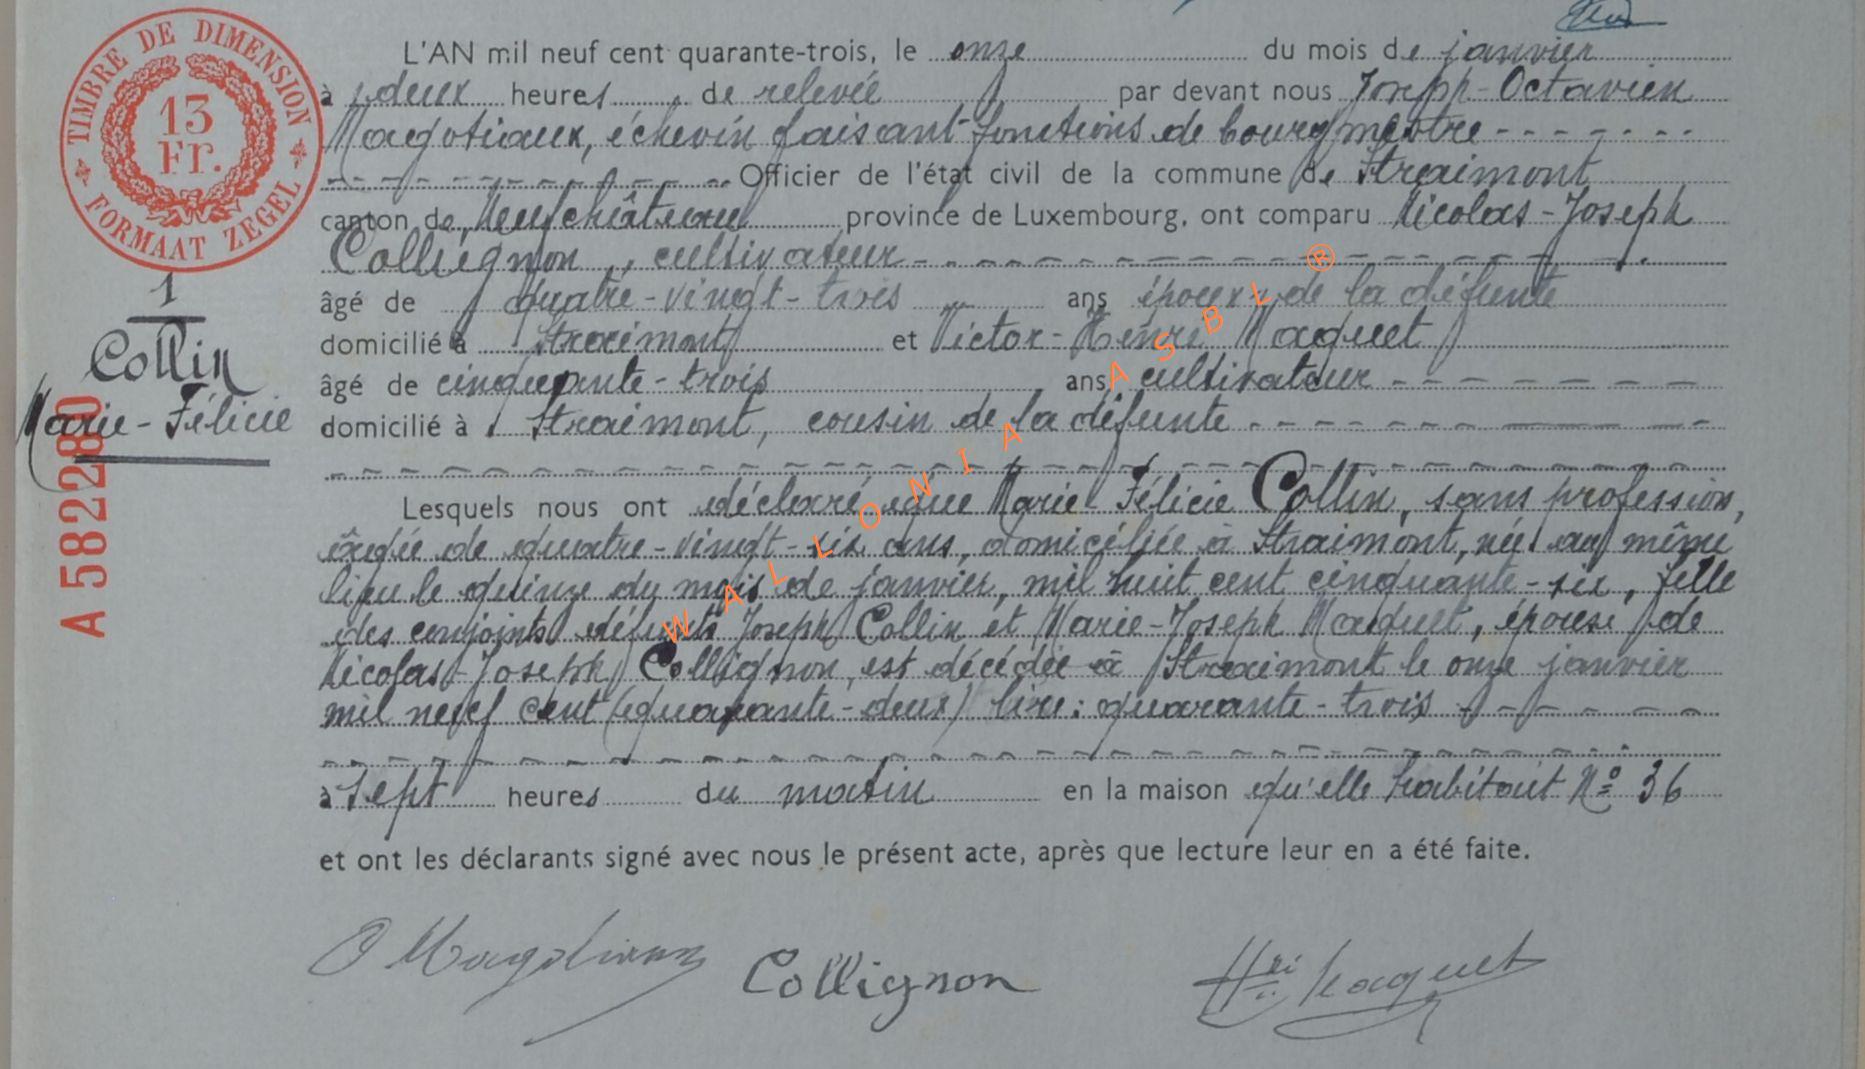 TIMBRE DE DIMENSION
13
Fr.
FORMAAT ZEGEL
1
Collin
Marie-Félicie
A 582280
L'AN mil neuf cent quarante-trois, le onze du mois de janvier
à deux heures de relevée par devant nous Joseph-Octavien
Magotiaux, échevin faisant fonctions de bourgmestre
Officier de l'état civil de la commune de Straimont
canton de Neufchâteau province de Luxembourg, ont comparu Nicolas-Joseph
Collignon, cultivateur
âgé de quatre-vingt-trois ans époux de la défunte
domicilié à Straimont et Victor-Henri Maquet
âgé de cinquante-trois ans cultivateur
domicilié à Straimont, cousin de la défunte
Lesquels nous ont déclaré que Marie-Félicie Collin, sans profession,
âgée de quatre-vingt-six ans, domiciliée à Straimont, née au même
lieu le quinze du mois de janvier, mil huit cent cinquante-six, fille
des conjoints défunts Joseph Collin et Marie-Joseph Maquet, épouse de
Nicolas-Joseph Collignon, est décédée à Straimont le onze janvier
mil neuf cent (quarante-deux) lire: quarante-trois
à sept heures du matin en la maison qu'elle habitait Nº 36
et ont les déclarants signé avec nous le présent acte, après que lecture leur en a été faite.
O Magotiaux Collignon Hri Maquet
WALLONIA ASBL ®